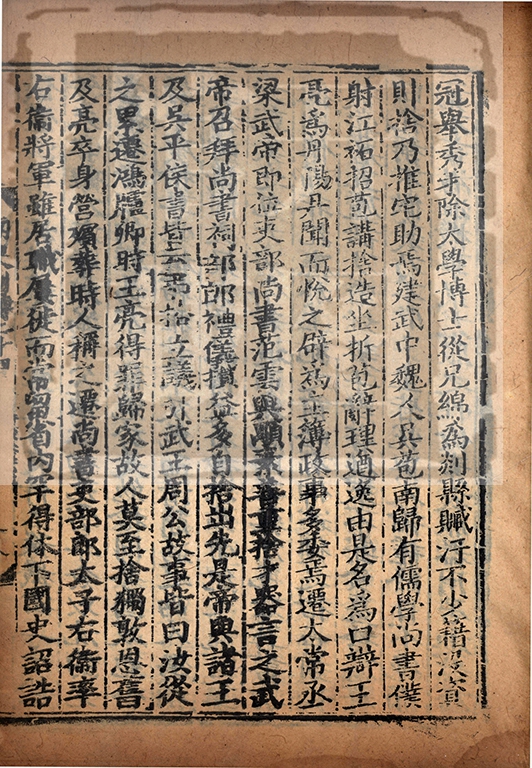 冠舉秀才除太學博士從兄綿爲剡縣贓汙不少籍沒資
則捨乃推宅助焉建武中魏人吳苞南歸有儒學尚書僕
射江祐招苞講捨造坐折苞辭理遒逸由是名爲口辯王
亮爲丹陽尹聞而悅之辟爲主簿政事多委焉遷太常丞
梁武帝即位吏部尚書范雲與顒素善重捨才器言之武
帝召拜尚書祠部郎禮儀損益多自捨出先是帝與諸王
及吳平侯書皆云弟捨立議引武王周公故事皆曰汝從
之累遷鴻臚卿時王亮得罪歸家故人莫至捨獨敦恩舊
及亮卒身營殯葬時人稱之遷尚書吏部郎太子右衛率
右衛將軍雖居職屢徙而常留省內罕得休下國史詔誥